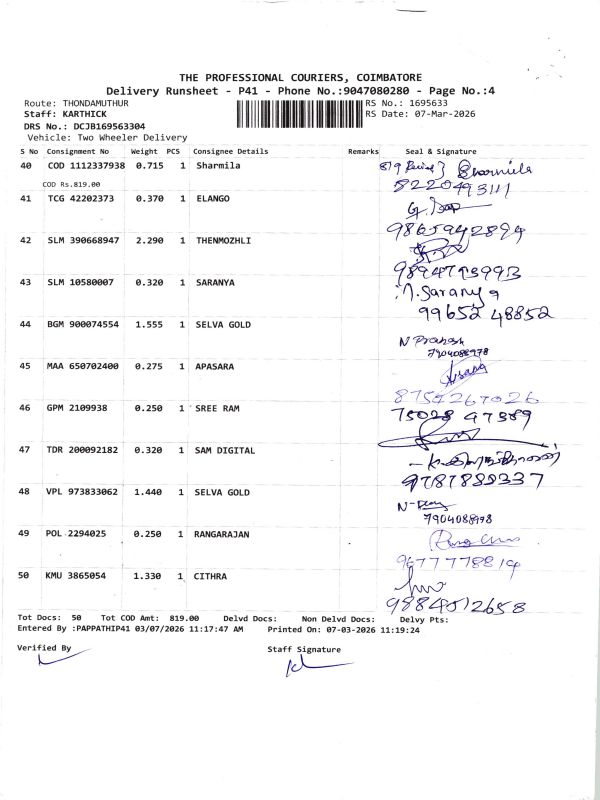 THE PROFESSIONAL COURIERS, COIMBATORE
Delivery Runsheet - P41 - Phone No.:9047080280 - Page No.:4
Route: THONDAMUTHUR
RS No.: 1695633
Staff: KARTHICK
RS Date: 07-Mar-2026
DRS No.: DCJB169563304
Vehicle: Two Wheeler Delivery
S No Consignment No Weight PCS Consignee Details Remarks Seal & Signature
40 COD 1112337938 0.715 1 Sharmila Sharmila
COD Rs.819.00 8220493111
41 TCG 42202373 0.370 1 ELANGO
9865942894
42 SLM 390668947 2.290 1 THENMOZHLI
43 SLM 10580007 0.320 1 SARANYA Saranya
99652 48852
44 BGM 900074554 1.555 1 SELVA GOLD
N Prakash
7904088978
45 MAA 650702400 0.275 1 APASARA
46 GPM 2109938 0.250 1 SREE RAM
47 TDR 200092182 0.320 1 SAM DIGITAL
48 VPL 973833062 1.440 1 SELVA GOLD
7904088978
49 POL 2294025 0.250 1 RANGARAJAN
50 KMU 3865054 1.330 1 CITHRA
Tot Docs: 50 Tot COD Amt: 819.00 Delvd Docs: Non Delvd Docs: Delvy Pts:
Entered By :PAPPATHIP41 03/07/2026 11:17:47 AM Printed On: 07-03-2026 11:19:24
Verified By Staff Signature